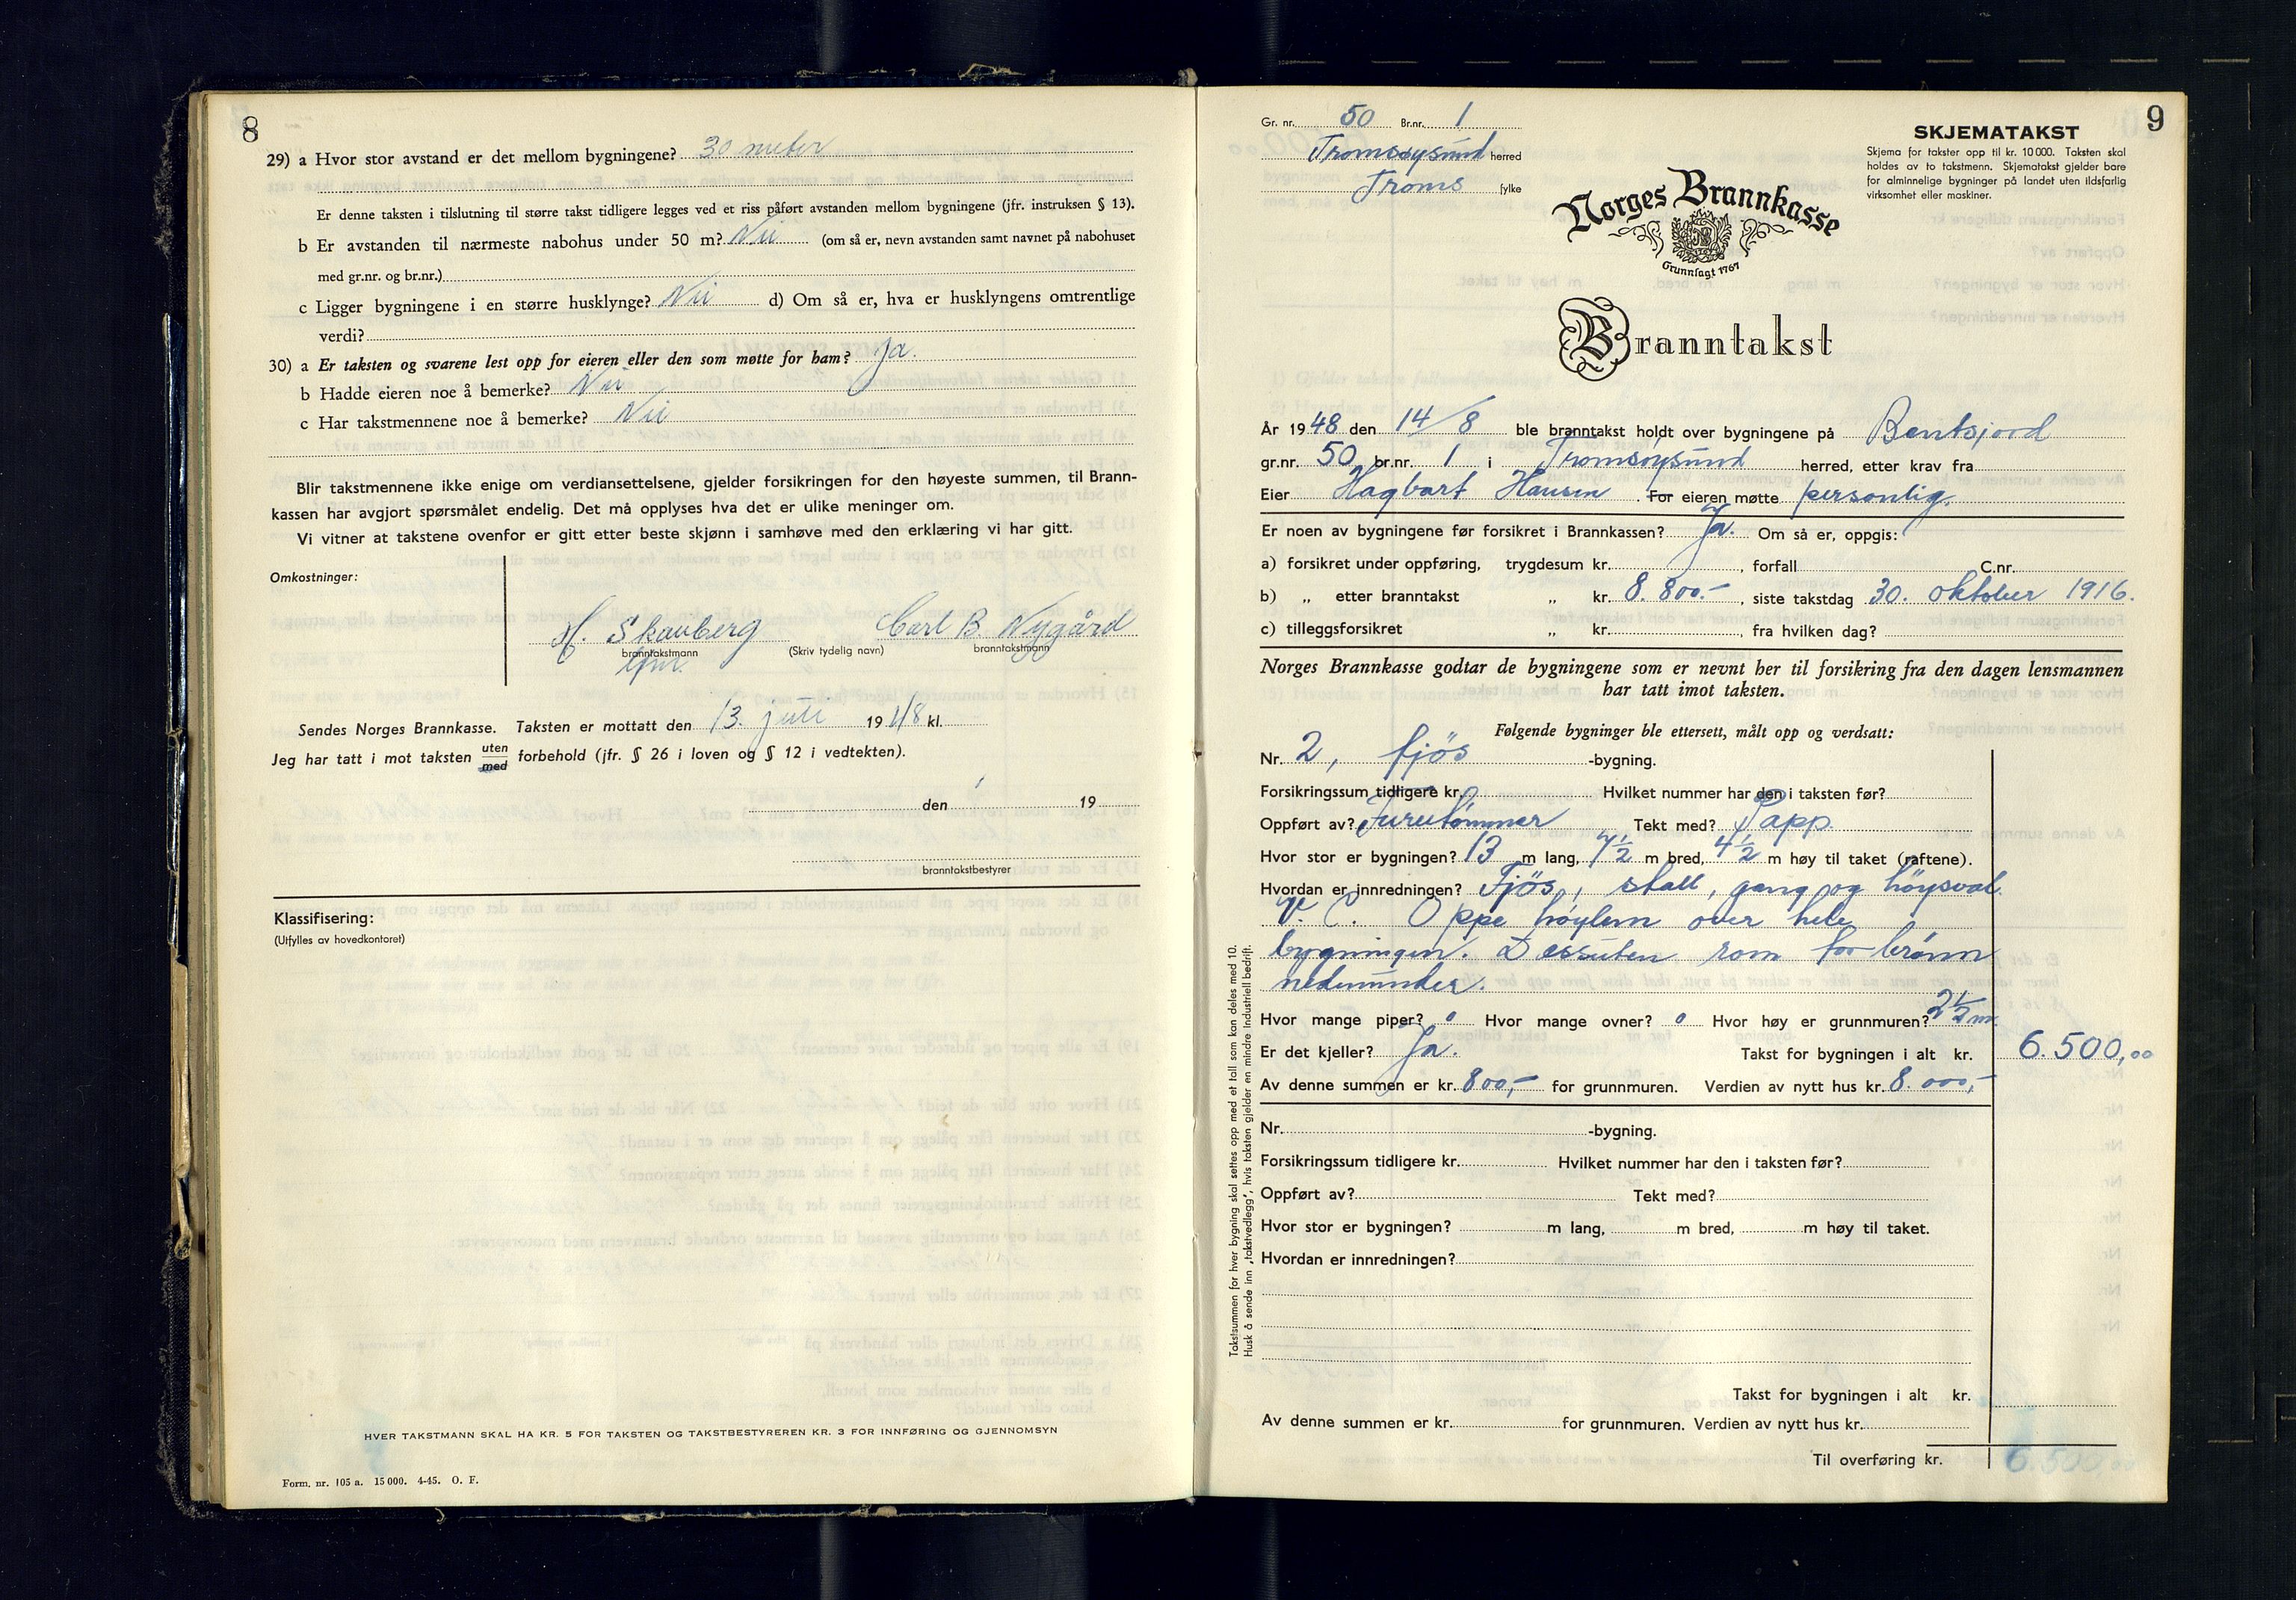 8
29) a Hvor stor avstand er det mellom bygningene? 30 meter
Er denne taksten i tilslutning til større takst tidligere legges ved et riss påført avstanden mellom bygningene (jfr. instruksen § 13).
b Er avstanden til nærmeste nabohus under 50 m? Nei (om så er, nevn avstanden samt navnet på nabohuset
med gr.nr. og br.nr.)
c Ligger bygningene i en større husklynge? Nei d) Om så er, hva er husklyngens omtrentlige
verdi?
30) a Er taksten og svarene lest opp for eieren eller den som møtte for ham? Ja.
b Hadde eieren noe å bemerke? Nei
c Har takstmennene noe å bemerke? Nei
Blir takstmennene ikke enige om verdiansettelsene, gjelder forsikringen for den høyeste summen, til Brann-
kassen har avgjort spørsmålet endelig. Det må opplyses hva det er ulike meninger om.
Vi vitner at takstene ovenfor er gitt etter beste skjønn i samhøve med den erklæring vi har gitt.
Omkostninger:
H. Skauberg Carl B. Nygård
branntakstmann (Skriv tydelig navn) branntakstmann
Sendes Norges Brannkasse. Taksten er mottatt den 13. juli 1948 kl.
Jeg har tatt i mot taksten uten
med forbehold (jfr. § 26 i loven og § 12 i vedtekten).
den 19
branntakstbestyrer
Klassifisering:
(Utfylles av hovedkontoret)
HVER TAKSTMANN SKAL HA KR. 5 FOR TAKSTEN OG TAKSTBESTYREREN KR. 3 FOR INNFØRING OG GJENNOMSYN
Form. nr. 105 a. 15 000. 4-45. O. F.
9
Gr. nr. 50 Br.nr. 1
Tromsøysund herred
Troms fylke
SKJEMATAKST
Skjema for takster opp til kr. 10 000. Taksten skal
holdes av to takstmenn. Skjematakst gjelder bare
for alminnelige bygninger på landet uten ildsfarlig
virksomhet eller maskiner.
Norges Brannkasse
Grunnlagt 1767
Branntakst
År 1948 den 14/8 ble branntakst holdt over bygningene på Bentsjord
gr.nr. 50 br.nr. 1 i Tromsøysund herred, etter krav fra
Eier Hagbart Hansen For eieren møtte personlig.
Er noen av bygningene før forsikret i Brannkassen? Ja. Om så er, oppgis:
a) forsikret under oppføring, trygdesum kr. , forfall C.nr.
b) „ etter branntakst „ kr. 8.800.- , siste takstdag 30. oktober 1916.
c) tilleggsforsikret „ kr. , fra hvilken dag?
Norges Brannkasse godtar de bygningene som er nevnt her til forsikring fra den dagen lensmannen
har tatt imot taksten.
Følgende bygninger ble ettersett, målt opp og verdsatt:
Nr. 2, fjös -bygning.
Forsikringssum tidligere kr. Hvilket nummer har den i taksten før?
Oppført av? Furutömmer Tekt med? Papp.
Hvor stor er bygningen? 13 m lang, 7½ m bred, 4½ m høy til taket (raftene).
Hvordan er innredningen? Fjös, stall, gang og höysval.
V. C. Oppe höylem over hele
bygningen. Dessuten rom for brönn
nedunder.
Hvor mange piper? 0 Hvor mange ovner? 0 Hvor høy er grunnmuren? 2½ m
Er det kjeller? Ja. Takst for bygningen i alt kr. 6.500,00
Av denne summen er kr. 800,- for grunnmuren. Verdien av nytt hus kr. 8.000,-
Nr. -bygning.
Forsikringssum tidligere kr. Hvilket nummer har den i taksten før?
Oppført av? Tekt med?
Hvor stor er bygningen? m lang, m bred, m høy til taket.
Hvordan er innredningen?
Takst for bygningen i alt kr.
Av denne summen er kr. for grunnmuren. Verdien av nytt hus kr.
Til overføring kr. 6.500,00
Takstsummen for hver bygning skal settes opp med et tall som kan deles med 10.
Husk å sende inn „takstvedlegg", hvis taksten gjelder en mindre industriell bedrift.